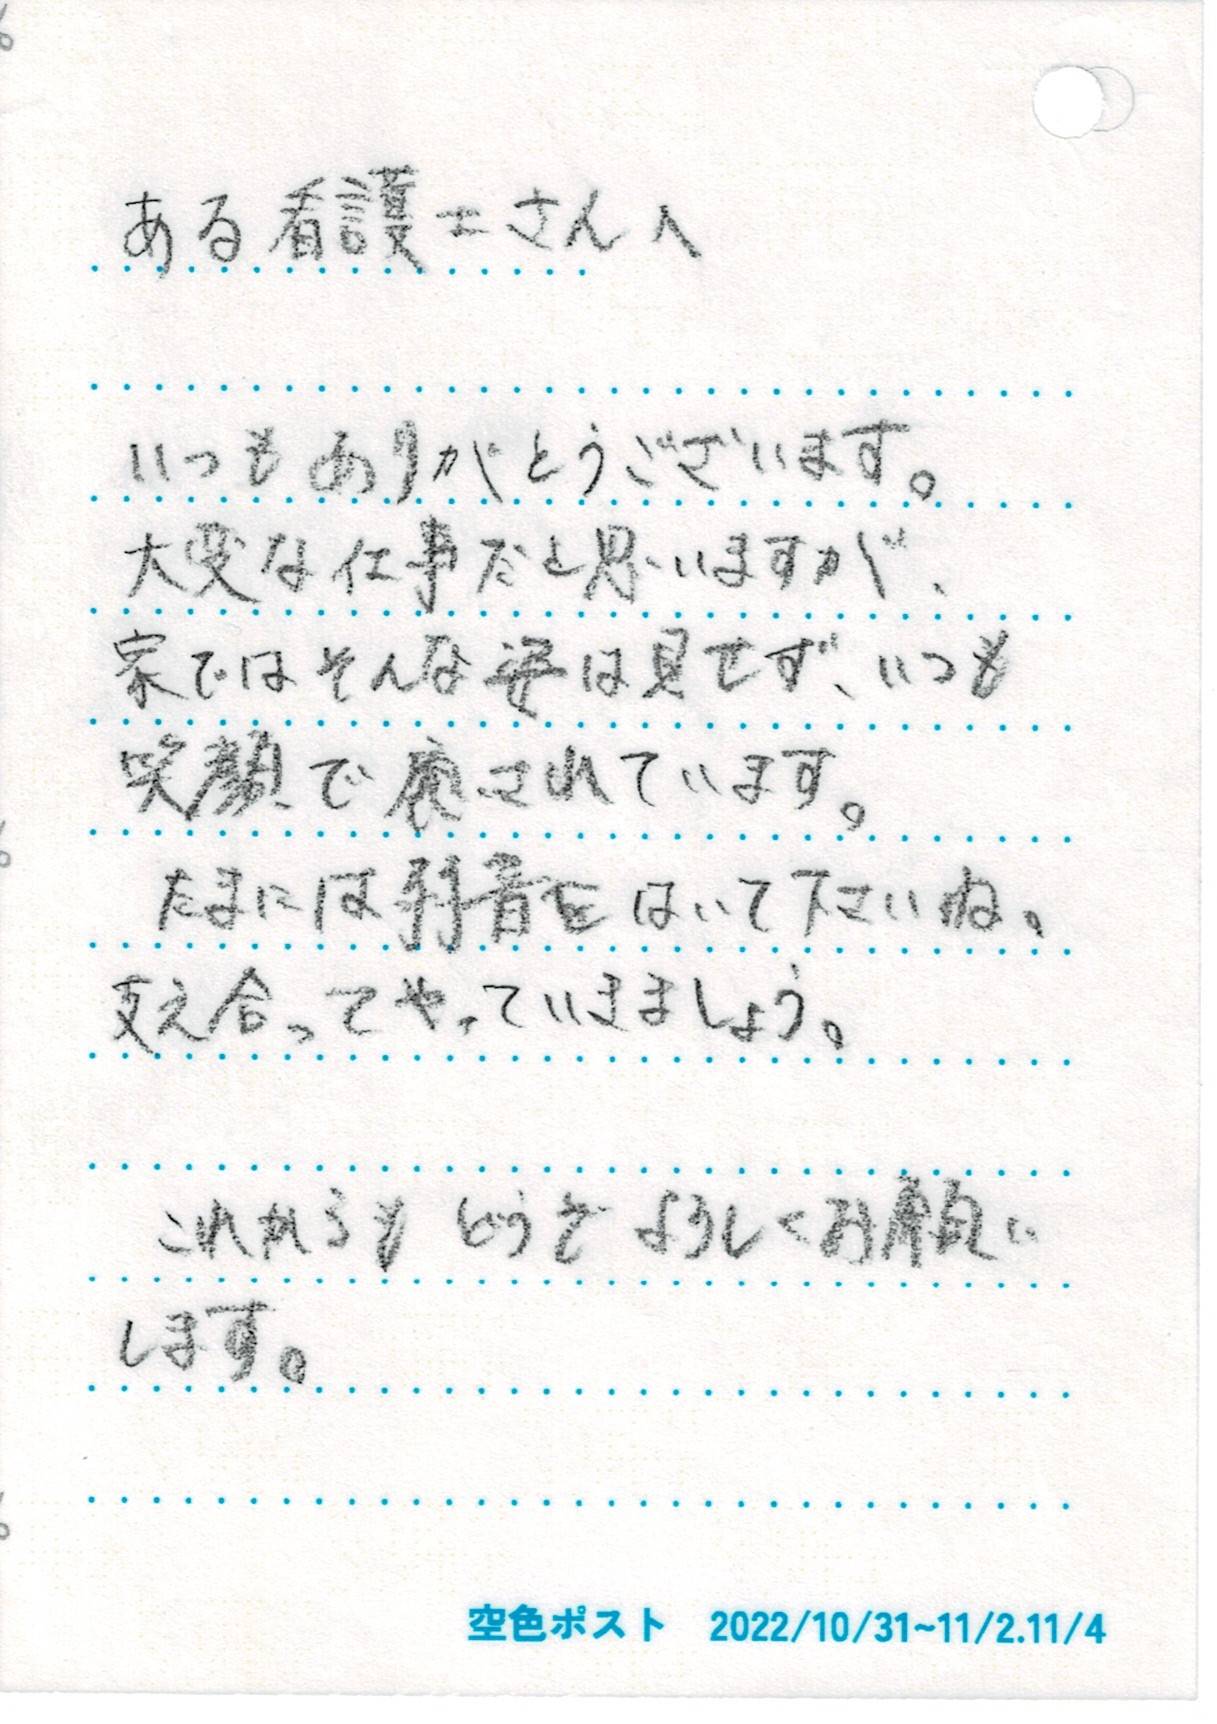 ある看護士さんへ
いつもありがとうございます。
大変な仕事だと思いますが、
家ではそんな姿は見せず、いつも
笑顔で癒されています。
たまには弱音をはいて下さいね。
支え合ってやっていきましょう。
これからもどうぞよろしくお願い
します。
空色ポスト 2022/10/31~11/2.11/4